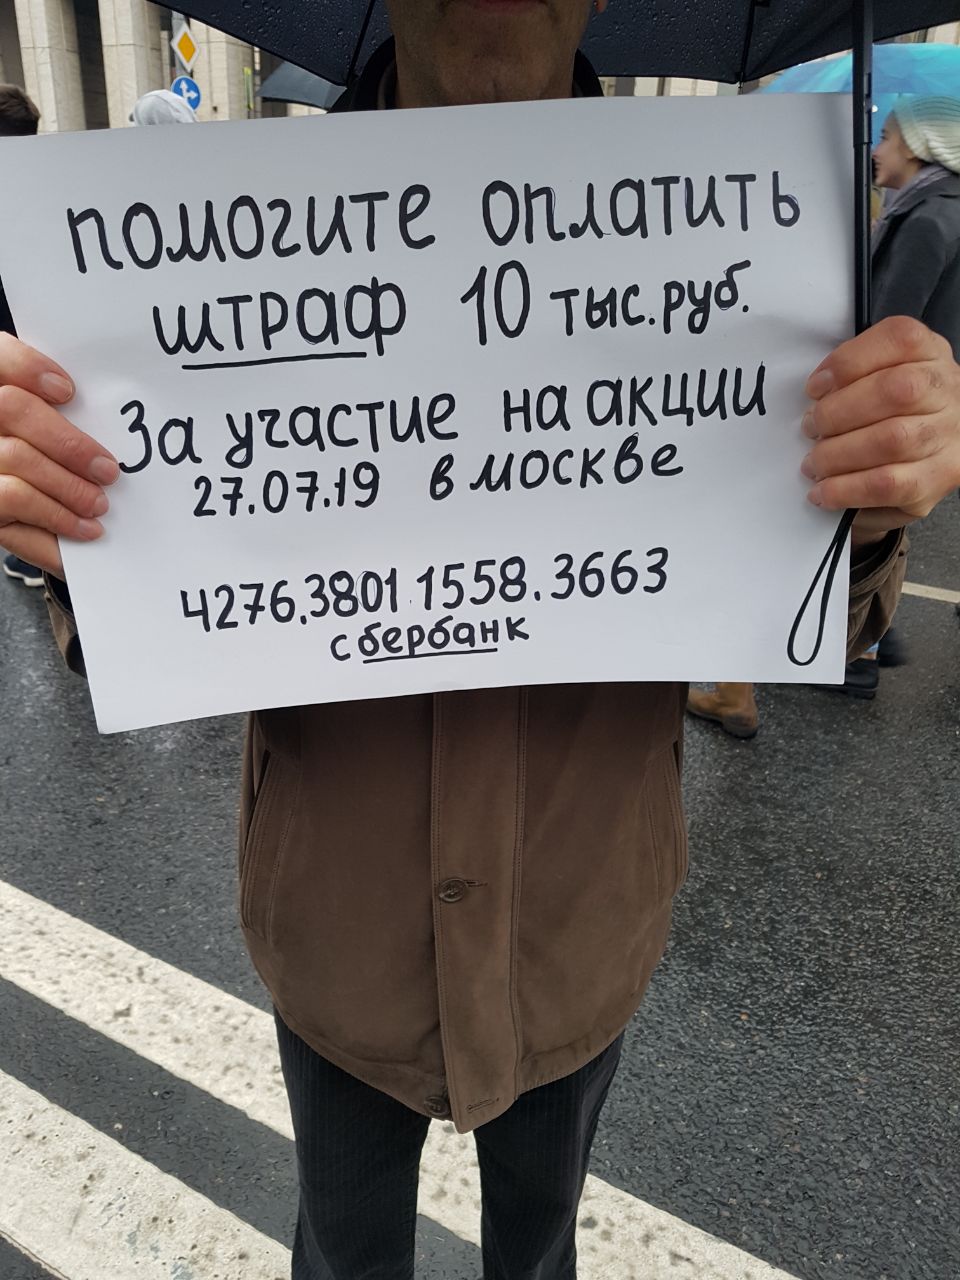 помогите оплатить
штраф 10 тыс. руб.
За участие на акции
27.07.19 в москве
4276.3801 1558.3663
сбербанк